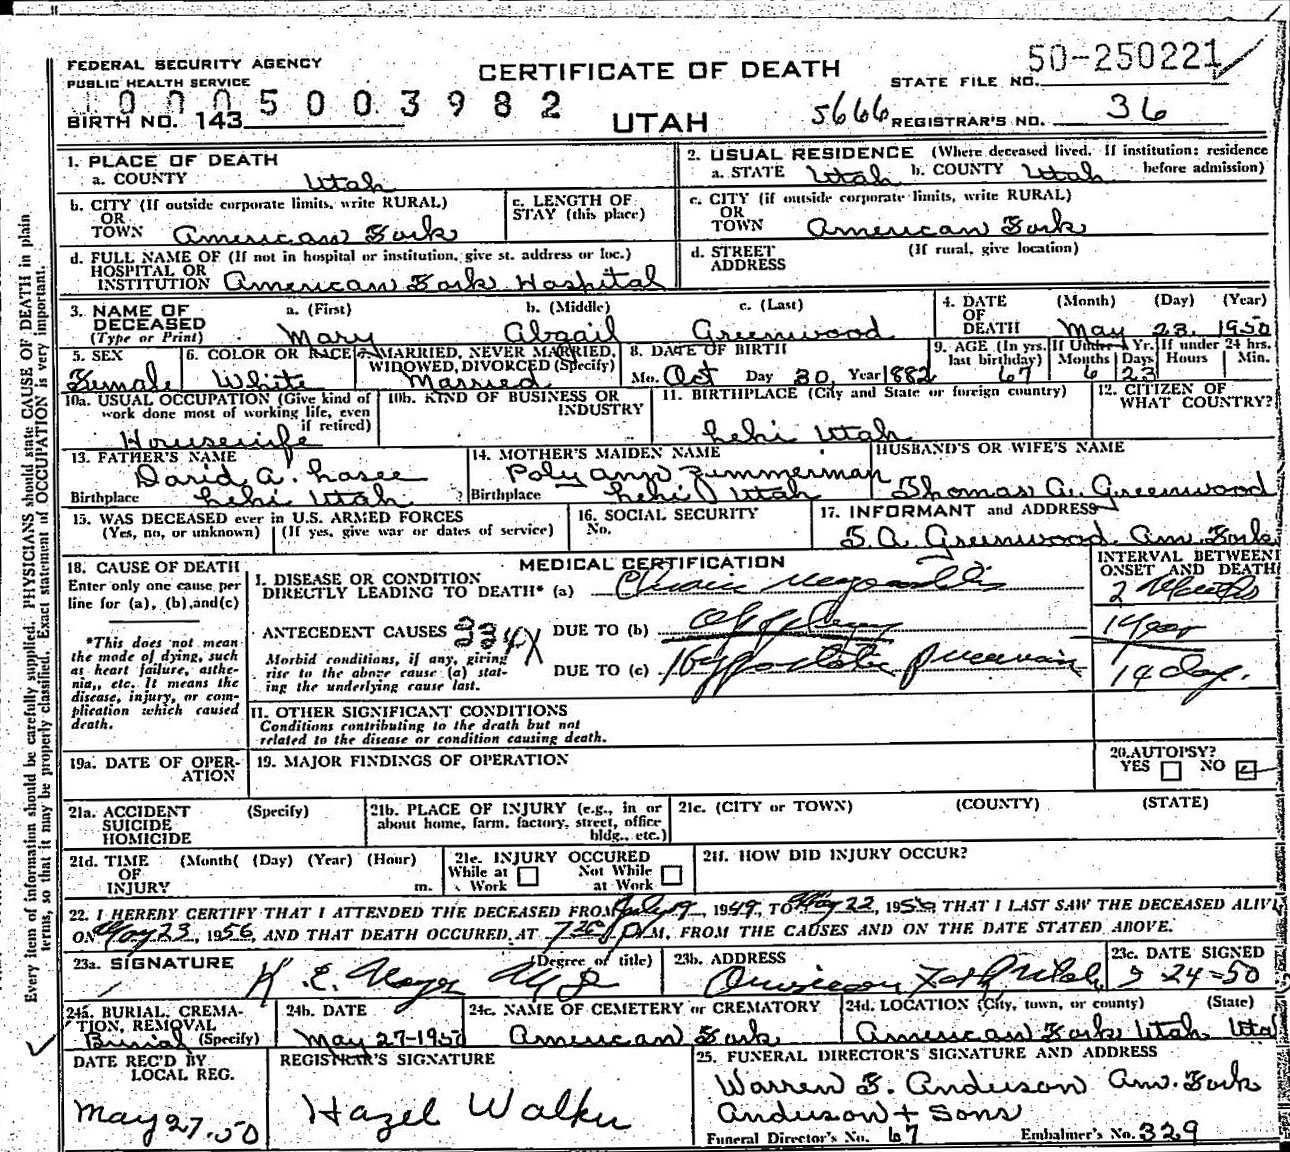 FEDERAL SECURITY AGENCY
PUBLIC HEALTH SERVICE
CERTIFICATE OF DEATH
UTAH
STATE FILE NO. 50-250221
10005003982
BIRTH NO. 143
5666 REGISTRAR'S NO. 36
Every item of information should be carefully supplied. PHYSICIANS should state CAUSE OF DEATH in plain
terms, so that it may be properly classified. Exact statement of OCCUPATION is very important.
1. PLACE OF DEATH
a. COUNTY Utah
2. USUAL RESIDENCE (Where deceased lived. If institution: residence
a. STATE Utah b. COUNTY Utah before admission)
b. CITY (If outside corporate limits, write RURAL)
OR
TOWN American Fork
c. LENGTH OF
STAY (this place)
c. CITY (if outside corporate limits, write RURAL)
OR
TOWN American Fork
d. FULL NAME OF (If not in hospital or institution, give st. address or loc.)
HOSPITAL OR
INSTITUTION American Fork Hospital
d. STREET (If rural, give location)
ADDRESS
3. NAME OF DECEASED (Type or Print)
a. (First) b. (Middle) c. (Last)
Mary Abgail Greenwood
4. DATE OF DEATH (Month) (Day) (Year)
May 23. 1950
5. SEX
Female
6. COLOR OR RACE
White
7. MARRIED, NEVER MARRIED,
WIDOWED, DIVORCED (Specify)
Married
8. DATE OF BIRTH
Mo. Oct Day 30 Year 1882
9. AGE (In yrs. last birthday) 67
If Under 1 Yr. Months 6 Days 23
If under 24 hrs. Hours Min.
10a. USUAL OCCUPATION (Give kind of
work done most of working life, even
if retired)
Housewife
10b. KIND OF BUSINESS OR
INDUSTRY
11. BIRTHPLACE (City and State or foreign country)
Lehi Utah
12. CITIZEN OF
WHAT COUNTRY?
13. FATHER'S NAME
David A.
Birthplace Lehi Utah
14. MOTHER'S MAIDEN NAME
Poly ann Zimmerman
Birthplace Lehi Utah
HUSBAND'S OR WIFE'S NAME
Thomas A. Greenwood
15. WAS DECEASED ever in U.S. ARMED FORCES
(Yes, no, or unknown) (If yes, give war or dates of service)
16. SOCIAL SECURITY
No.
17. INFORMANT and ADDRESS
T. A. Greenwood Am. Fork
18. CAUSE OF DEATH
Enter only one cause per
line for (a), (b), and (c)
*This does not mean
the mode of dying, such
as heart failure, asthe-
nia, etc. It means the
disease, injury, or com-
plication which caused
death.
MEDICAL CERTIFICATION
INTERVAL BETWEEN
ONSET AND DEATH
I. DISEASE OR CONDITION
DIRECTLY LEADING TO DEATH* (a) Chronic
2 Months
ANTECEDENT CAUSES DUE TO (b) Apoplexy
1 year
Morbid conditions, if any, giving
rise to the above cause (a) stat-
ing the underlying cause last.
DUE TO (c) Hypostatic Pneumonia
14 days.
II. OTHER SIGNIFICANT CONDITIONS
Conditions contributing to the death but not
related to the disease or condition causing death.
19a. DATE OF OPER-
ATION
19. MAJOR FINDINGS OF OPERATION
20. AUTOPSY?
YES NO
21a. ACCIDENT (Specify)
SUICIDE
HOMICIDE
21b. PLACE OF INJURY (e.g., in or
about home, farm, factory, street, office
bldg., etc.)
21c. (CITY or TOWN) (COUNTY) (STATE)
21d. TIME (Month( (Day) (Year) (Hour)
OF
INJURY m.
21e. INJURY OCCURED
While at Work Not While at Work
21f. HOW DID INJURY OCCUR?
22. I HEREBY CERTIFY THAT I ATTENDED THE DECEASED FROM July 19, 1949, TO May 22, 1950 THAT I LAST SAW THE DECEASED ALIVE
ON May 23, 1950, AND THAT DEATH OCCURED AT P.M, FROM THE CAUSES AND ON THE DATE STATED ABOVE.
23a. SIGNATURE (Degree or title)
K. E.
23b. ADDRESS
American Fork, Utah
23c. DATE SIGNED
5 24-50
24a. BURIAL, CREMA-
TION, REMOVAL
Burial (Specify)
24b. DATE
May 27-1950
24c. NAME OF CEMETERY or CREMATORY
American Fork
24d. LOCATION (City, town, or county) (State)
American Fork Utah Uta
DATE REC'D BY
LOCAL REG.
May 27.50
REGISTRAR'S SIGNATURE
Hazel Walker
25. FUNERAL DIRECTOR'S SIGNATURE AND ADDRESS
Warren F. Anderson Am. Fork
Anderson + Sons
Funeral Director's No. 67 Embalmer's No. 329